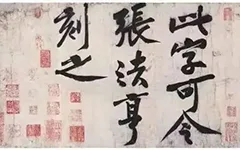 此字可令
張法亨
刻之